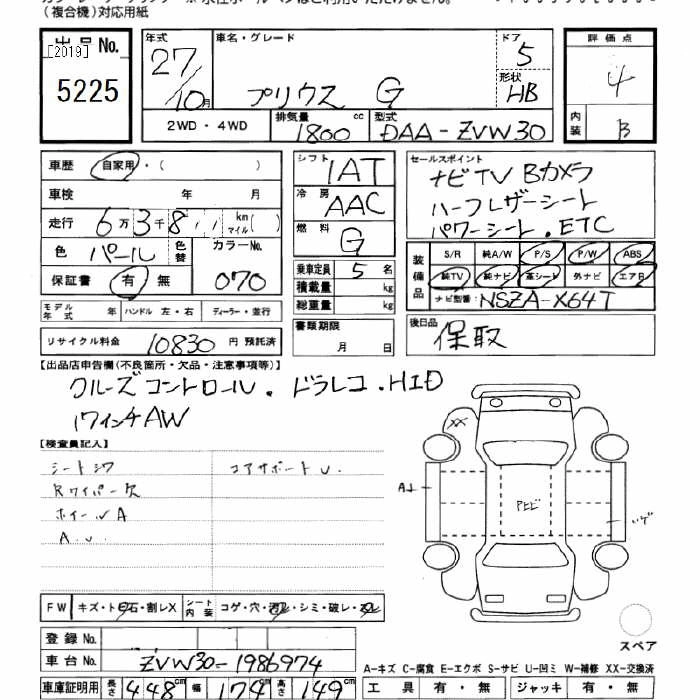 （複合機）対応用紙
出品No. [2019] 5225
年式 27/10月
車名・グレード プリウス G
ドア 5
形状 HB
2WD・4WD
排気量 1800 cc
型式 DAA-ZVW30
評価点 4
内装 B
車歴 自家用・（ ）
車検 年 月
走行 6万3千8 km マイル（ ）
色 パール 色替 カラーNo. 070
保証書 有 無
モデル年式 年 ハンドル 左・右 ディーラー・並行
リサイクル料金 10830 円 預託済
シフト IAT
冷房 AAC
燃料 G
乗車定員 5 名
積載量 kg
総重量 kg
書類期限 月 日
セールスポイント
ナビTV Bカメラ
ハーフレザーシート
パワーシート．ETC
装備品 S/R 純A/W P/S P/W ABS
純TV 純ナビ 革シート 外ナビ エアB
ナビ型番: NSZA-X64T
後日品 保取
【出品店申告欄(不良箇所・欠品・注意事項等)】
クルーズコントロール．ドラレコ．HID
17インチAW
【検査員記入】
シートシワ コアサポートU.
Rワイパー欠
ホイールA
A.U.
XX
A1
Pヒビ
FW キズ・ト石・割レX シート内装 コゲ・穴・・シミ・破レ・
スペア
登録No.
車台No. ZVW30-1986974
車庫証明用 長さ 448cm 幅 174cm 高さ 149cm
A-キズ C-腐食 E-エクボ S-サビ U-凹ミ W-補修 XX-交換済
工具 有・無 ジャッキ 有・無